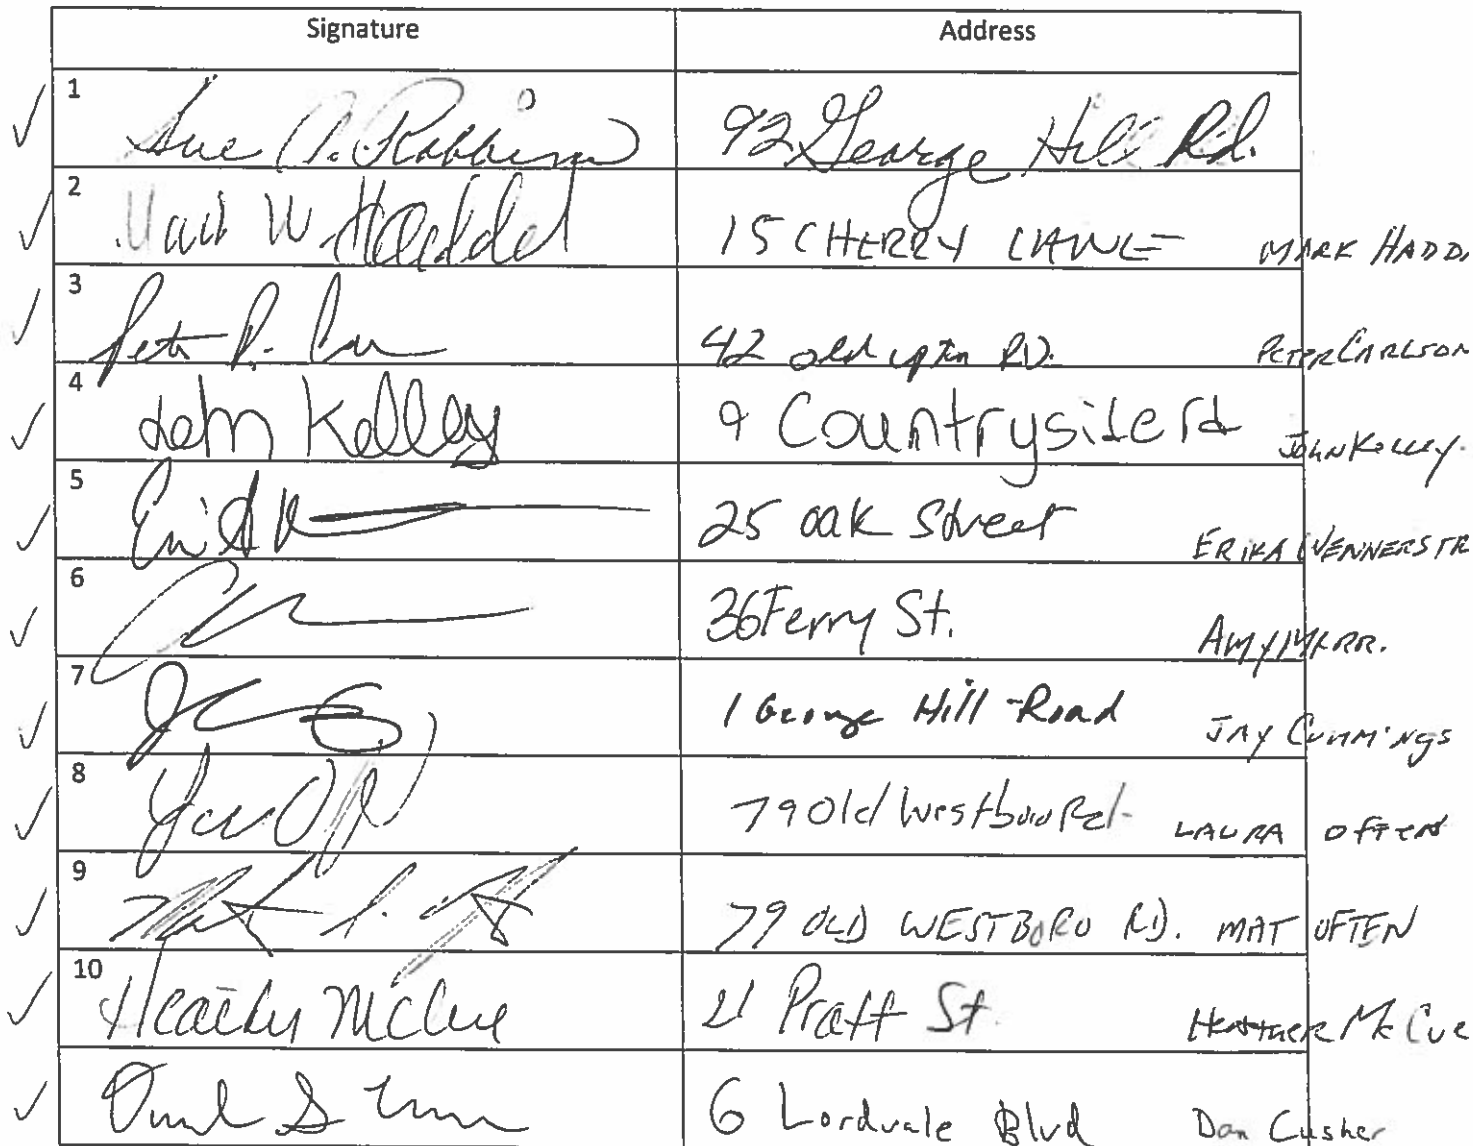 Signature Address
1 Sue A. Robbins 92 George Hill Rd.
2 Mark W Haddad 15 CHERRY LANE MARK HADDA
3 Peter P. 42 old upton RD. PETER CARLSON
4 John Kelley 9 Countryside rd JOHN KELLEY.
5 25 oak Street ERIKA WENNERSTR
6 36 Ferry St. AMY
7 1 George Hill Road JAY CUMMINGS
8 79 Old Westboro Rd. LAURA OFTEN
9 79 OLD WESTBORO RD. MAT OFTEN
10 Heather McCue 21 Pratt St. HEATHER McCUE
6 Lordvale Blvd Dan Cusher